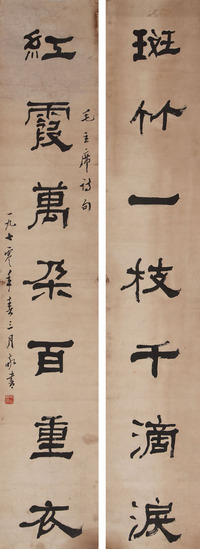 斑竹一枝千滴淚
紅霞萬朵百重衣
毛主席詩句
一九七零年春三月